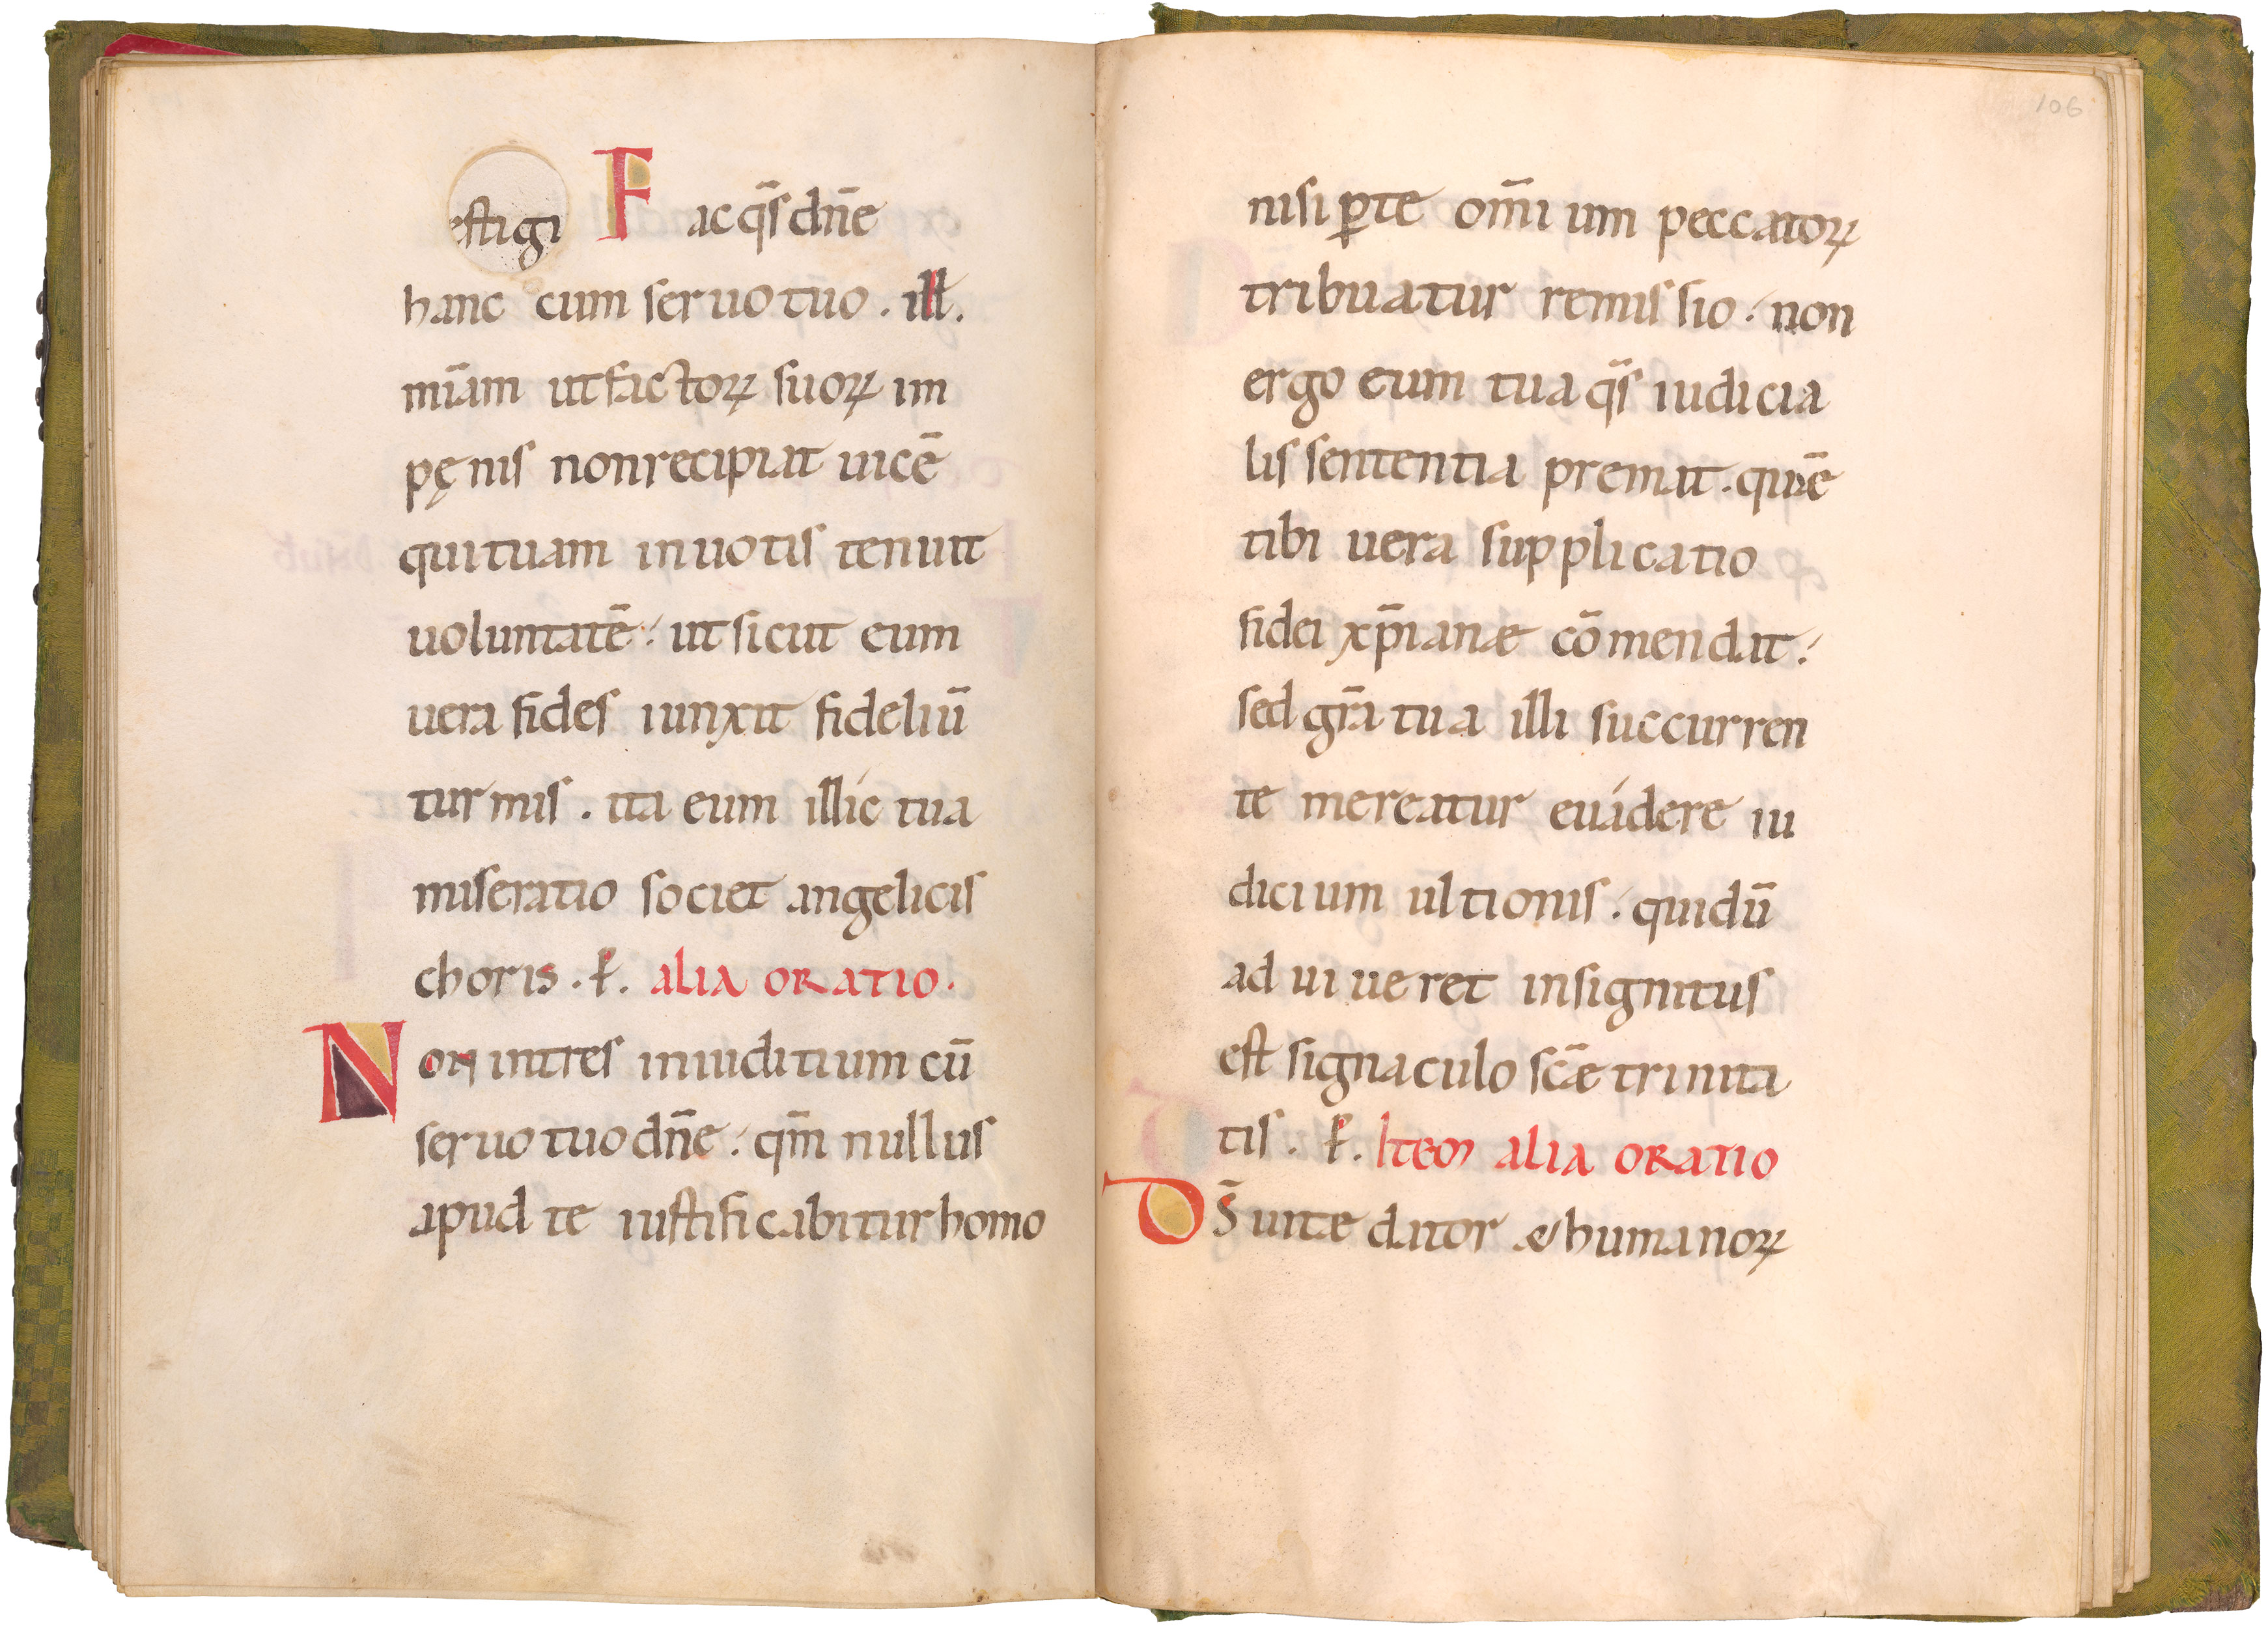 estigi Fac q̄s dn̄e
hanc cum seruo tuo . ill .
mīam ut factoꝝ suoꝝ im
pęnis non recipiat uicē
qui tuam in uotis tenuit
uoluntatē . ut sicut eum
uera fides iunxit fideliū
turmis . ita eum illíc tua
miseratio societ angelicis
choris . ꝑ . alia oratio .
Non intres in iuditium cū
seruo tuo dn̄e . qm̄ nullus
apud te iustificabitur homo
106
nisi ꝑ te om̄ium peccatoꝝ
tribuatur remissio . non
ergo eum tua q̄s iudicia
lis sententia premat . quē
tibi uera supplicatio
fidei xp̄ianæ cōmendat .
sed gr̄a tua illi succurren
te mereatur euádere iu
dicium ultionis . qui dū
aduiueret insignitus
est signaculo sc̄æ trinita
tis . ꝑ . Item alia oratio
Ds̄ uitæ dator & humanoꝝ